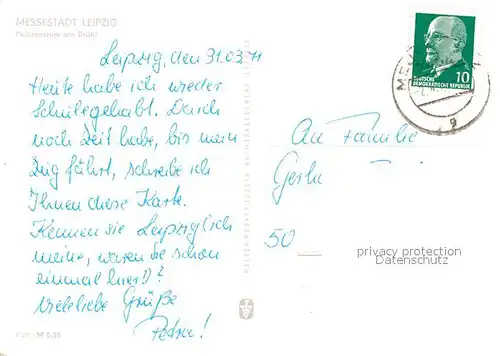 MESSESTADT LEIPZIG
Pelzzentrum am Brühl
Leipzig, den 31.03.71
Heute habe ich wieder
Schule gehabt. Da ich
noch Zeit habe, bis mein
Zug fährt, schreibe ich
Ihnen diese Karte.
Kennen sie Leipzig (ich
meine, waren sie schon
einmal hier!)?
Viele liebe Grüße
Petra!
M 0,20
10
DEUTSCHE
DEMOKRATISCHE REPUBLIK
An Familie
Gerln
50
privacy protection
Datenschutz